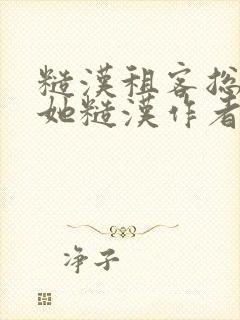 糙漢租客挖
她糙漢作者
净子